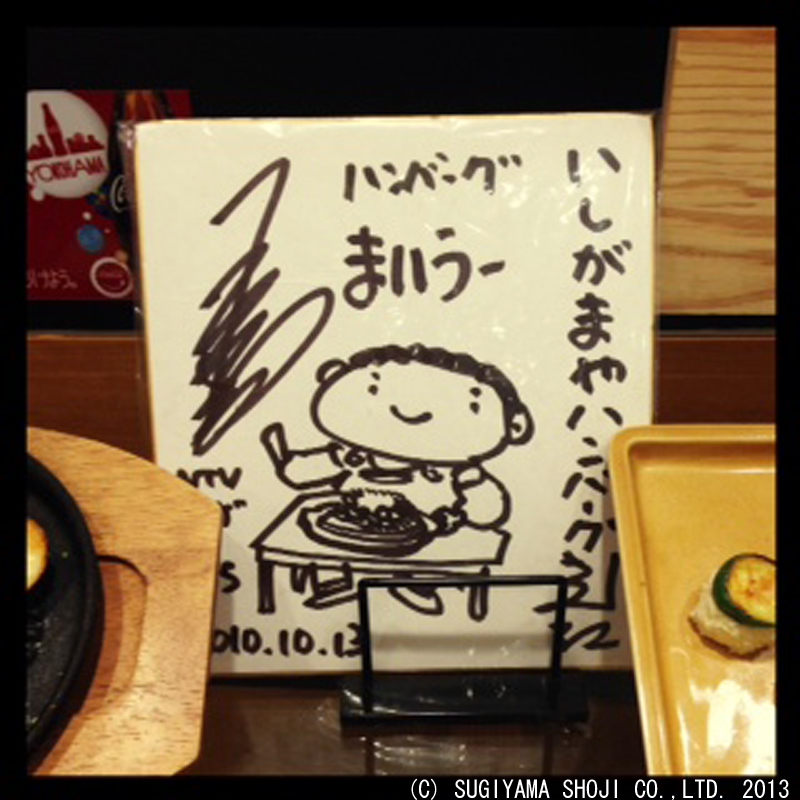 いしがまやハンバーグ
ハンバーグ
まいうー
NTV
2010.10.13
YOKOHAMA
(C) SUGIYAMA SHOJI CO.,LTD. 2013